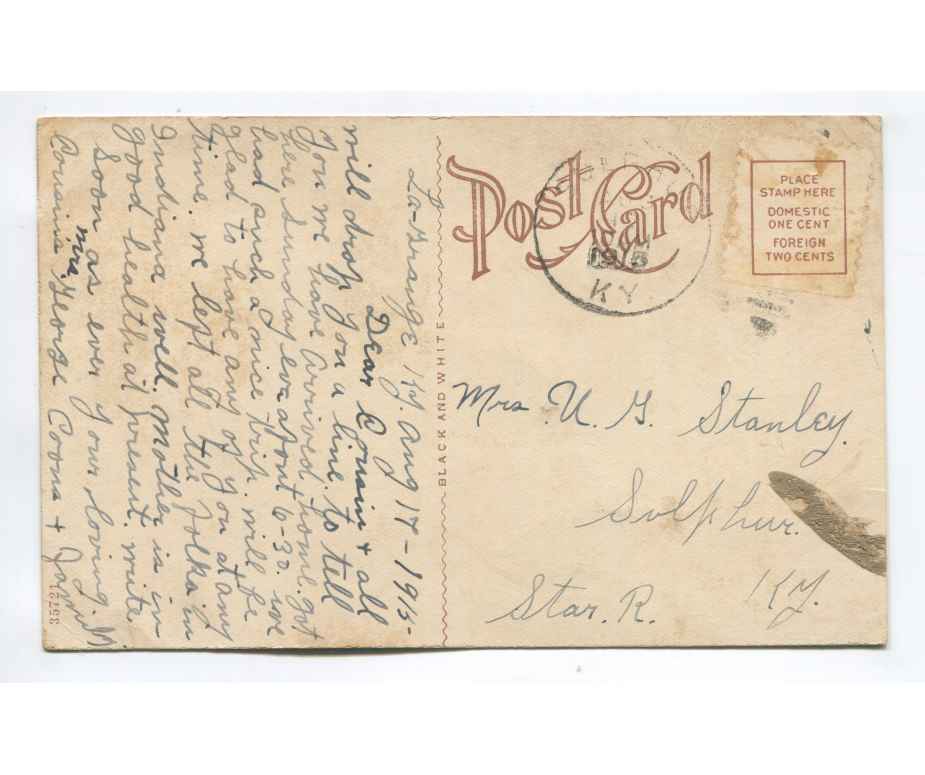 La-Grange Ky. Aug 17-1915-
Dear Cousin + all
will drop you a line to tell
you we have arrived home. got
here Sunday eve about 6-30. we
had such a nice trip. will be
glad to have any of you at any
time. we left all the folks in
Indiana well. Mother is in
good health at present. write
Soon as ever your loving
Cousins George Coons +
Mrs.
Post Card
1915
KY.
PLACE
STAMP HERE
DOMESTIC
ONE CENT
FOREIGN
TWO CENTS
BLACK AND WHITE
Mrs U. G. Stanley.
Sulphur.
Star. R. Ky.